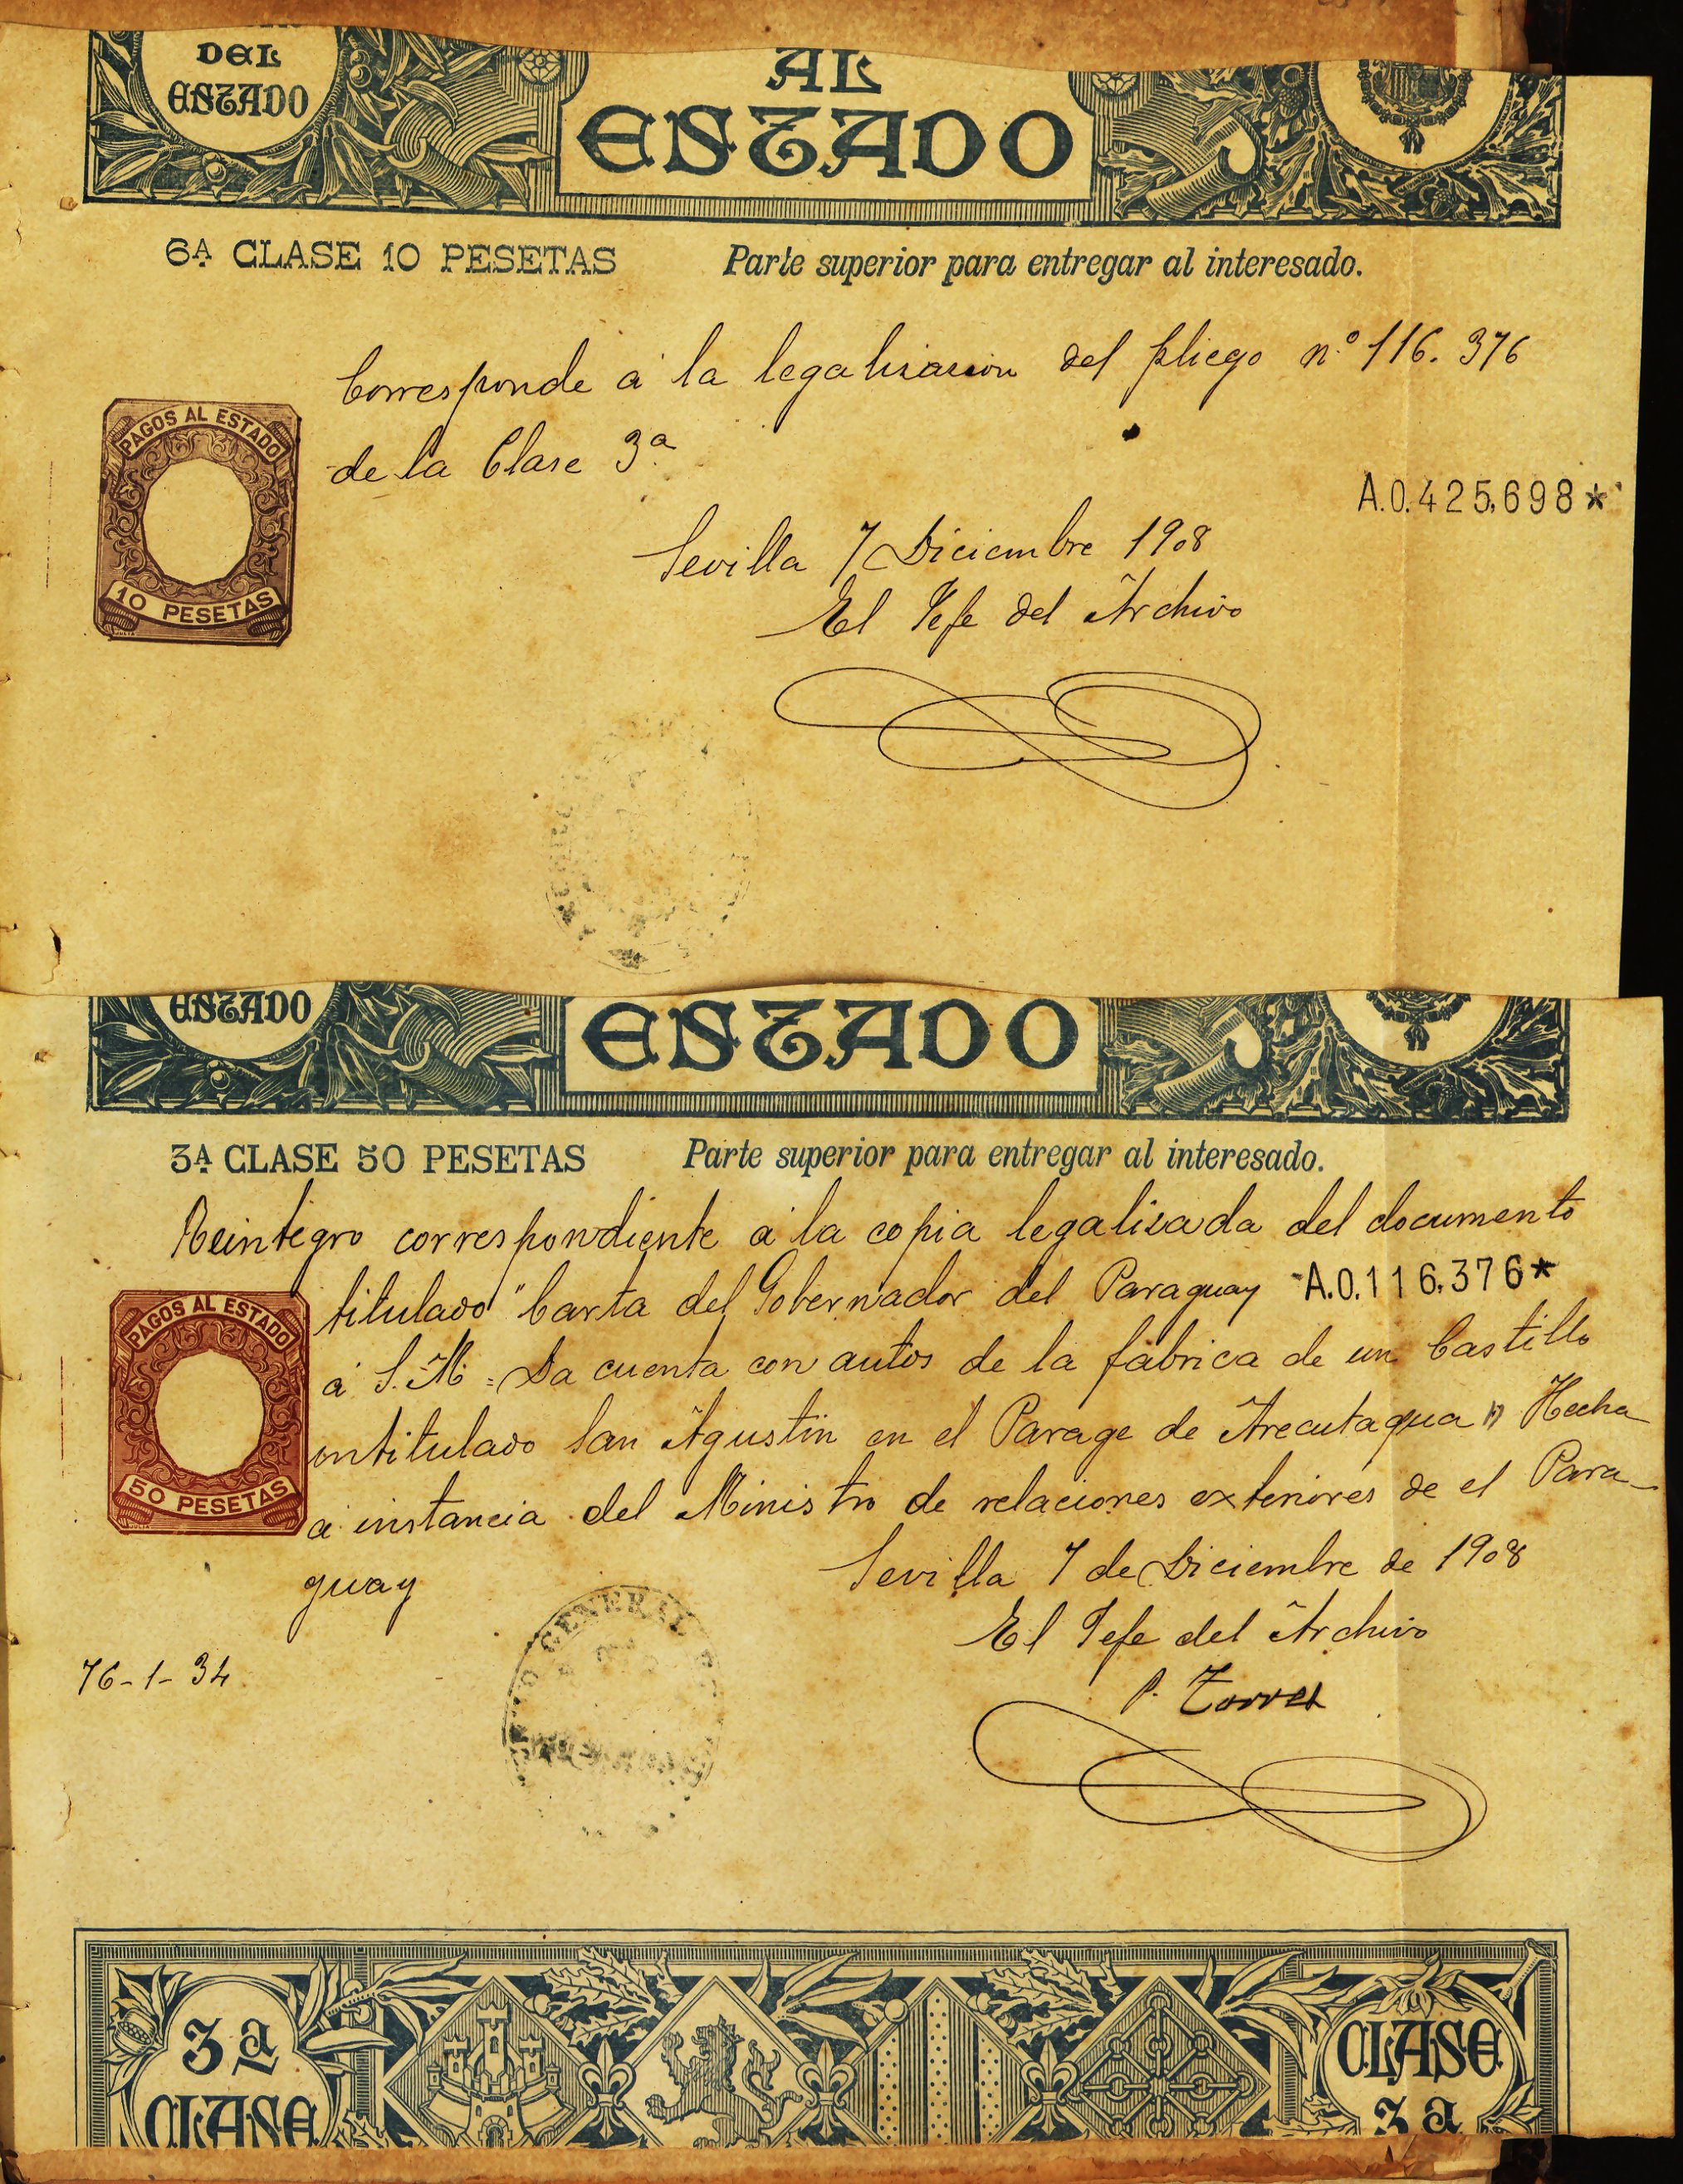 DEL
ESTADO
AL
ESTADO
6ª CLASE 10 PESETAS
Parte superior para entregar al interesado.
Corresponde á la legalizacion del pliego n.º 116.376
de la Clase 3ª
PAGOS AL ESTADO
10 PESETAS
A.0.425,698*
Sevilla 7 Diciembre 1908
El Jefe del Archivo
ESTADO
ESTADO
3ª CLASE 50 PESETAS
Parte superior para entregar al interesado.
Reintegro correspondiente á la copia legalizada del documento
titulado "Carta del Gobernador del Paraguay
A.0.116,376*
á S. M. = Da cuenta con autos de la fábrica de un Castillo
intitulado San Agustin en el Parage de Arecutaqua" Hecha
á instancia del Ministro de relaciones exteriores de el Para-
guay
PAGOS AL ESTADO
50 PESETAS
Sevilla 7 de Diciembre de 1908
El Jefe del Archivo
P. Torres
76-1-34
GENERAL
3ª
CLASE
CLASE
3ª